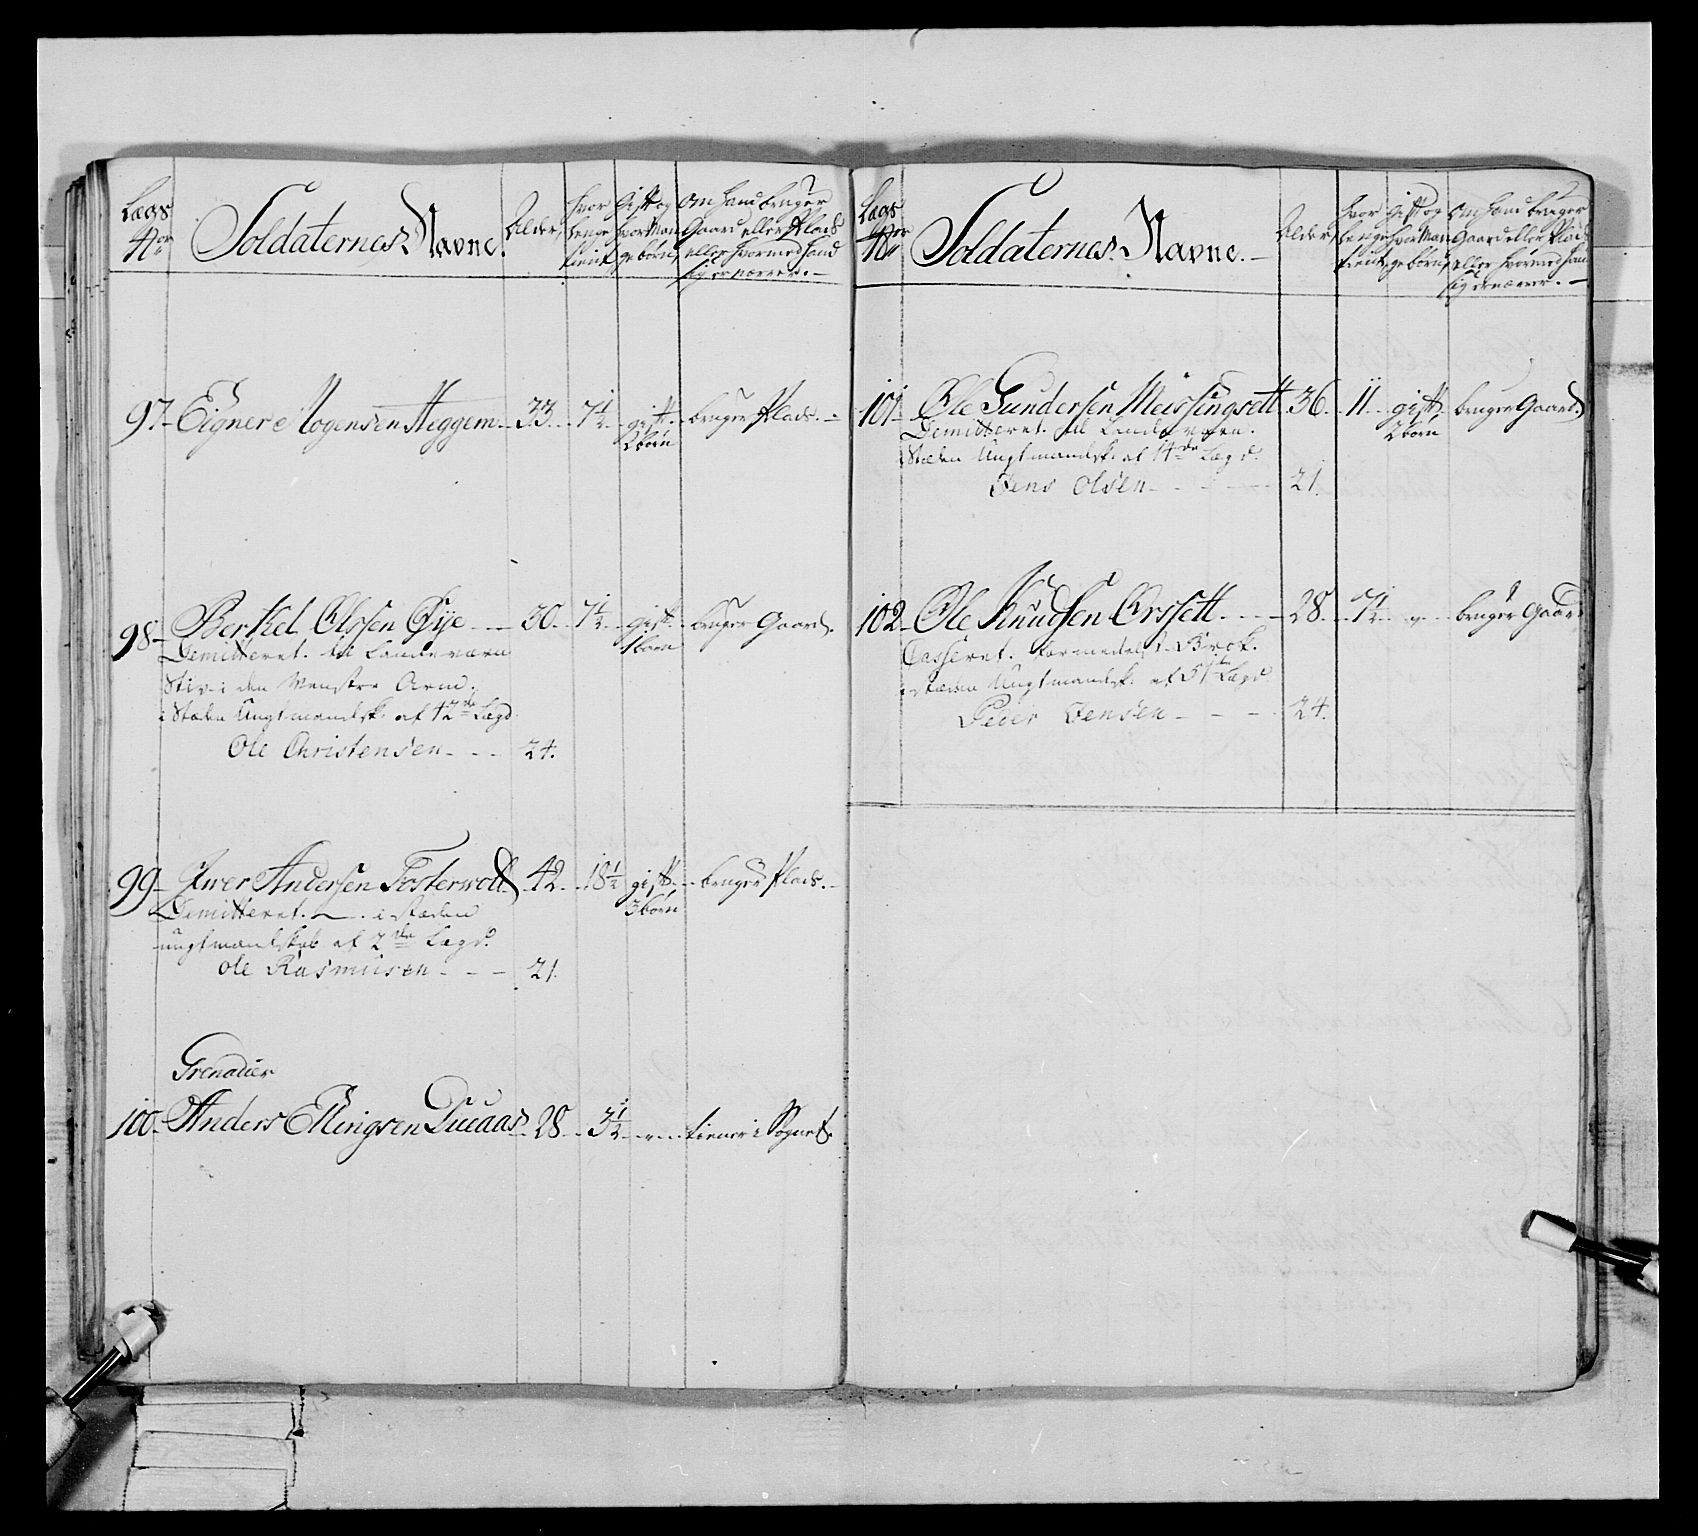 Lægs Nor
Soldaternes Navne.
Alder,
hvor længe tient,
Gift og hvor Mange børn,
Om hand bruger Gaard eller Plads eller hvormed hand sig ernærer. —
97 Eigner Mogensen Heggem 33. 7½ gift. 2 børn bruger Plads. —
98 Berthel Olssen Øye 30. 7½ gift. 1 børn bruger Gaard.
Demitteret. til Landeværn
Stiv i den Venstre Arm.
i Stæden Ungtmandsk. af 42de Lægd.
Ole Christensen - - - 24.
99 Iwer Andersen Fosterwold 42. 18½ gift. 3 børn bruger Plads. —
Demitteret. — . i stæden
ungtmandskab af 2de Lægd.
Ole Rasmusen - - - 21.
Grenadier
100 Anders Ellingsen Duaas 28. 3½ - v - tiener i Sognet.
Lægs Nor
Soldaternes Navne. —
Alder,
hvor længe tient,
Gift og hvor Mange børn,
Om hand bruger Gaard eller Plads eller hvormed hand sig ernærer. —
101 Ole Gundersen Meissingsett 36. 11 gift 2 børn bruger Gaard.
Demitteret. til Landeværn.
i Stæden Ungtmandsk. af 14de Lægd.
Jens Olsen - - - - 21.
102 Ole Knudsen Orssett 28. 7½ - v - bruger Gaard
Casseret. formedelst Brok.
i stæden Ungtmandsk. af 51te Lægd
Peder Jensen - - - 24.